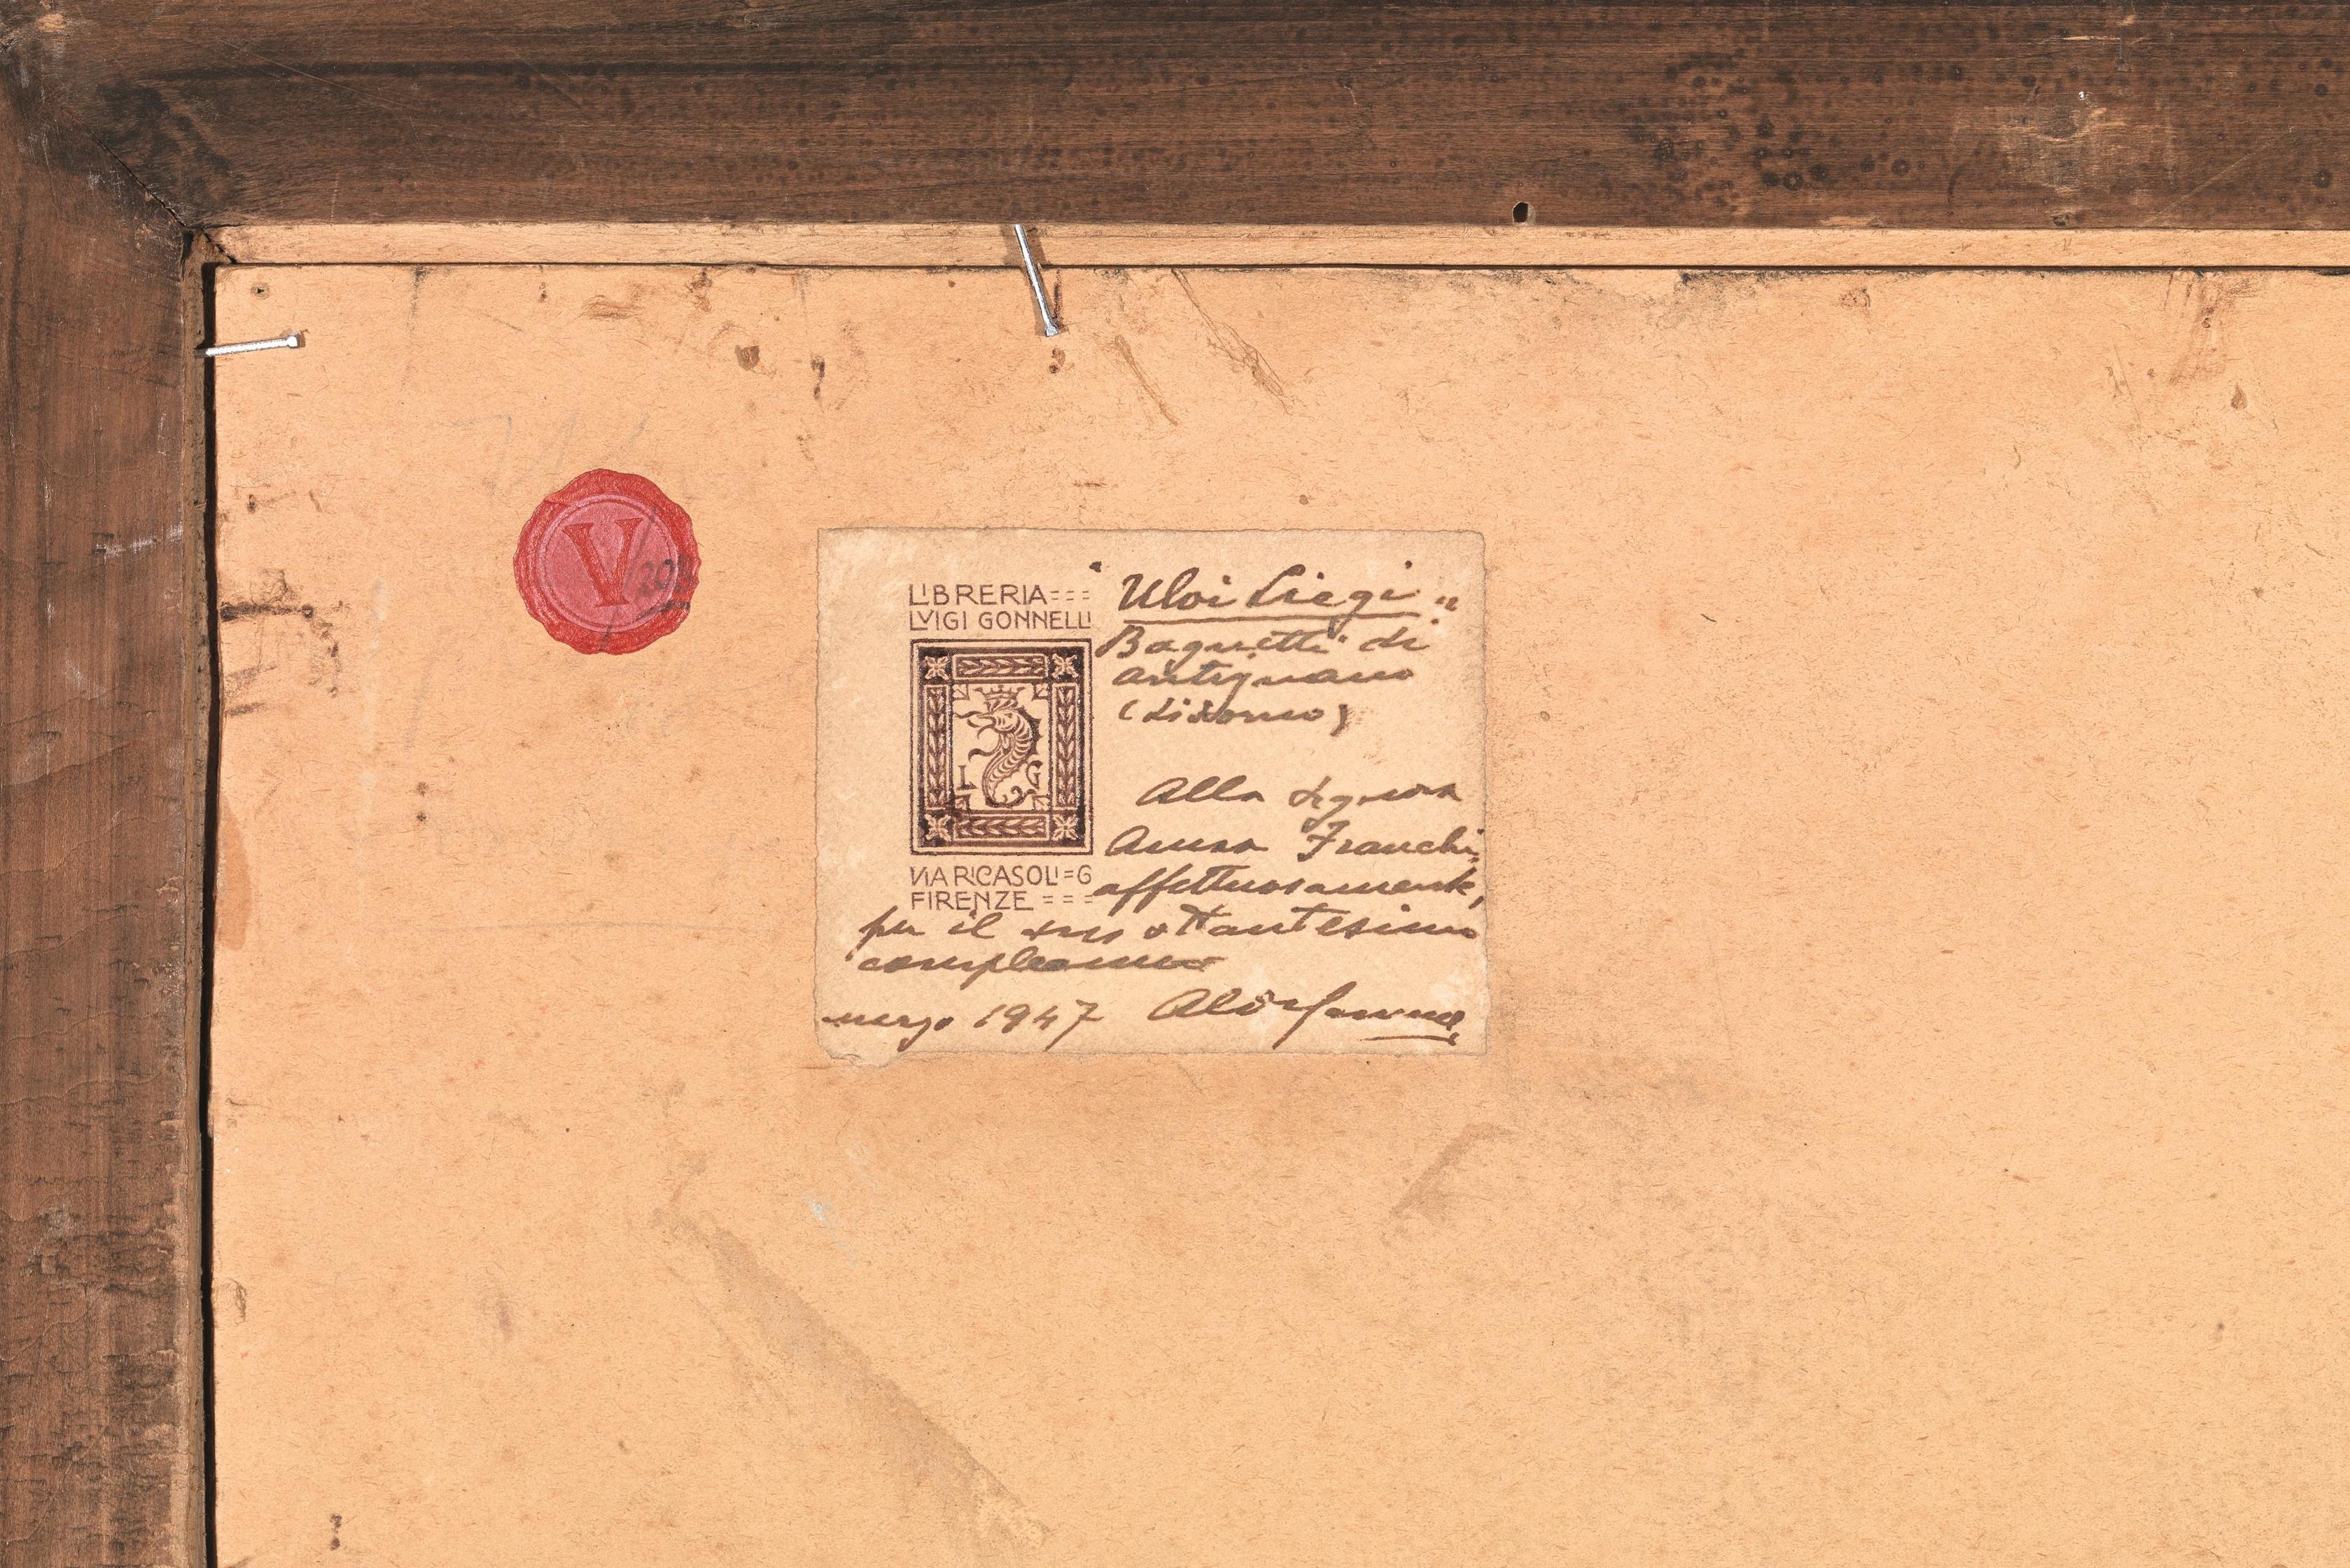 V
203
LIBRERIA===
LVIGI GONNELLI
L G
VIA RICASOLI=6
FIRENZE ===
"Uloi Liegi"
Bagnetti" di
Antignano
(Livorno)
Alla Signora
Anna Franchi
affettuosamente,
per il suo ottantesimo
compleanno
marzo 1947 Aldo